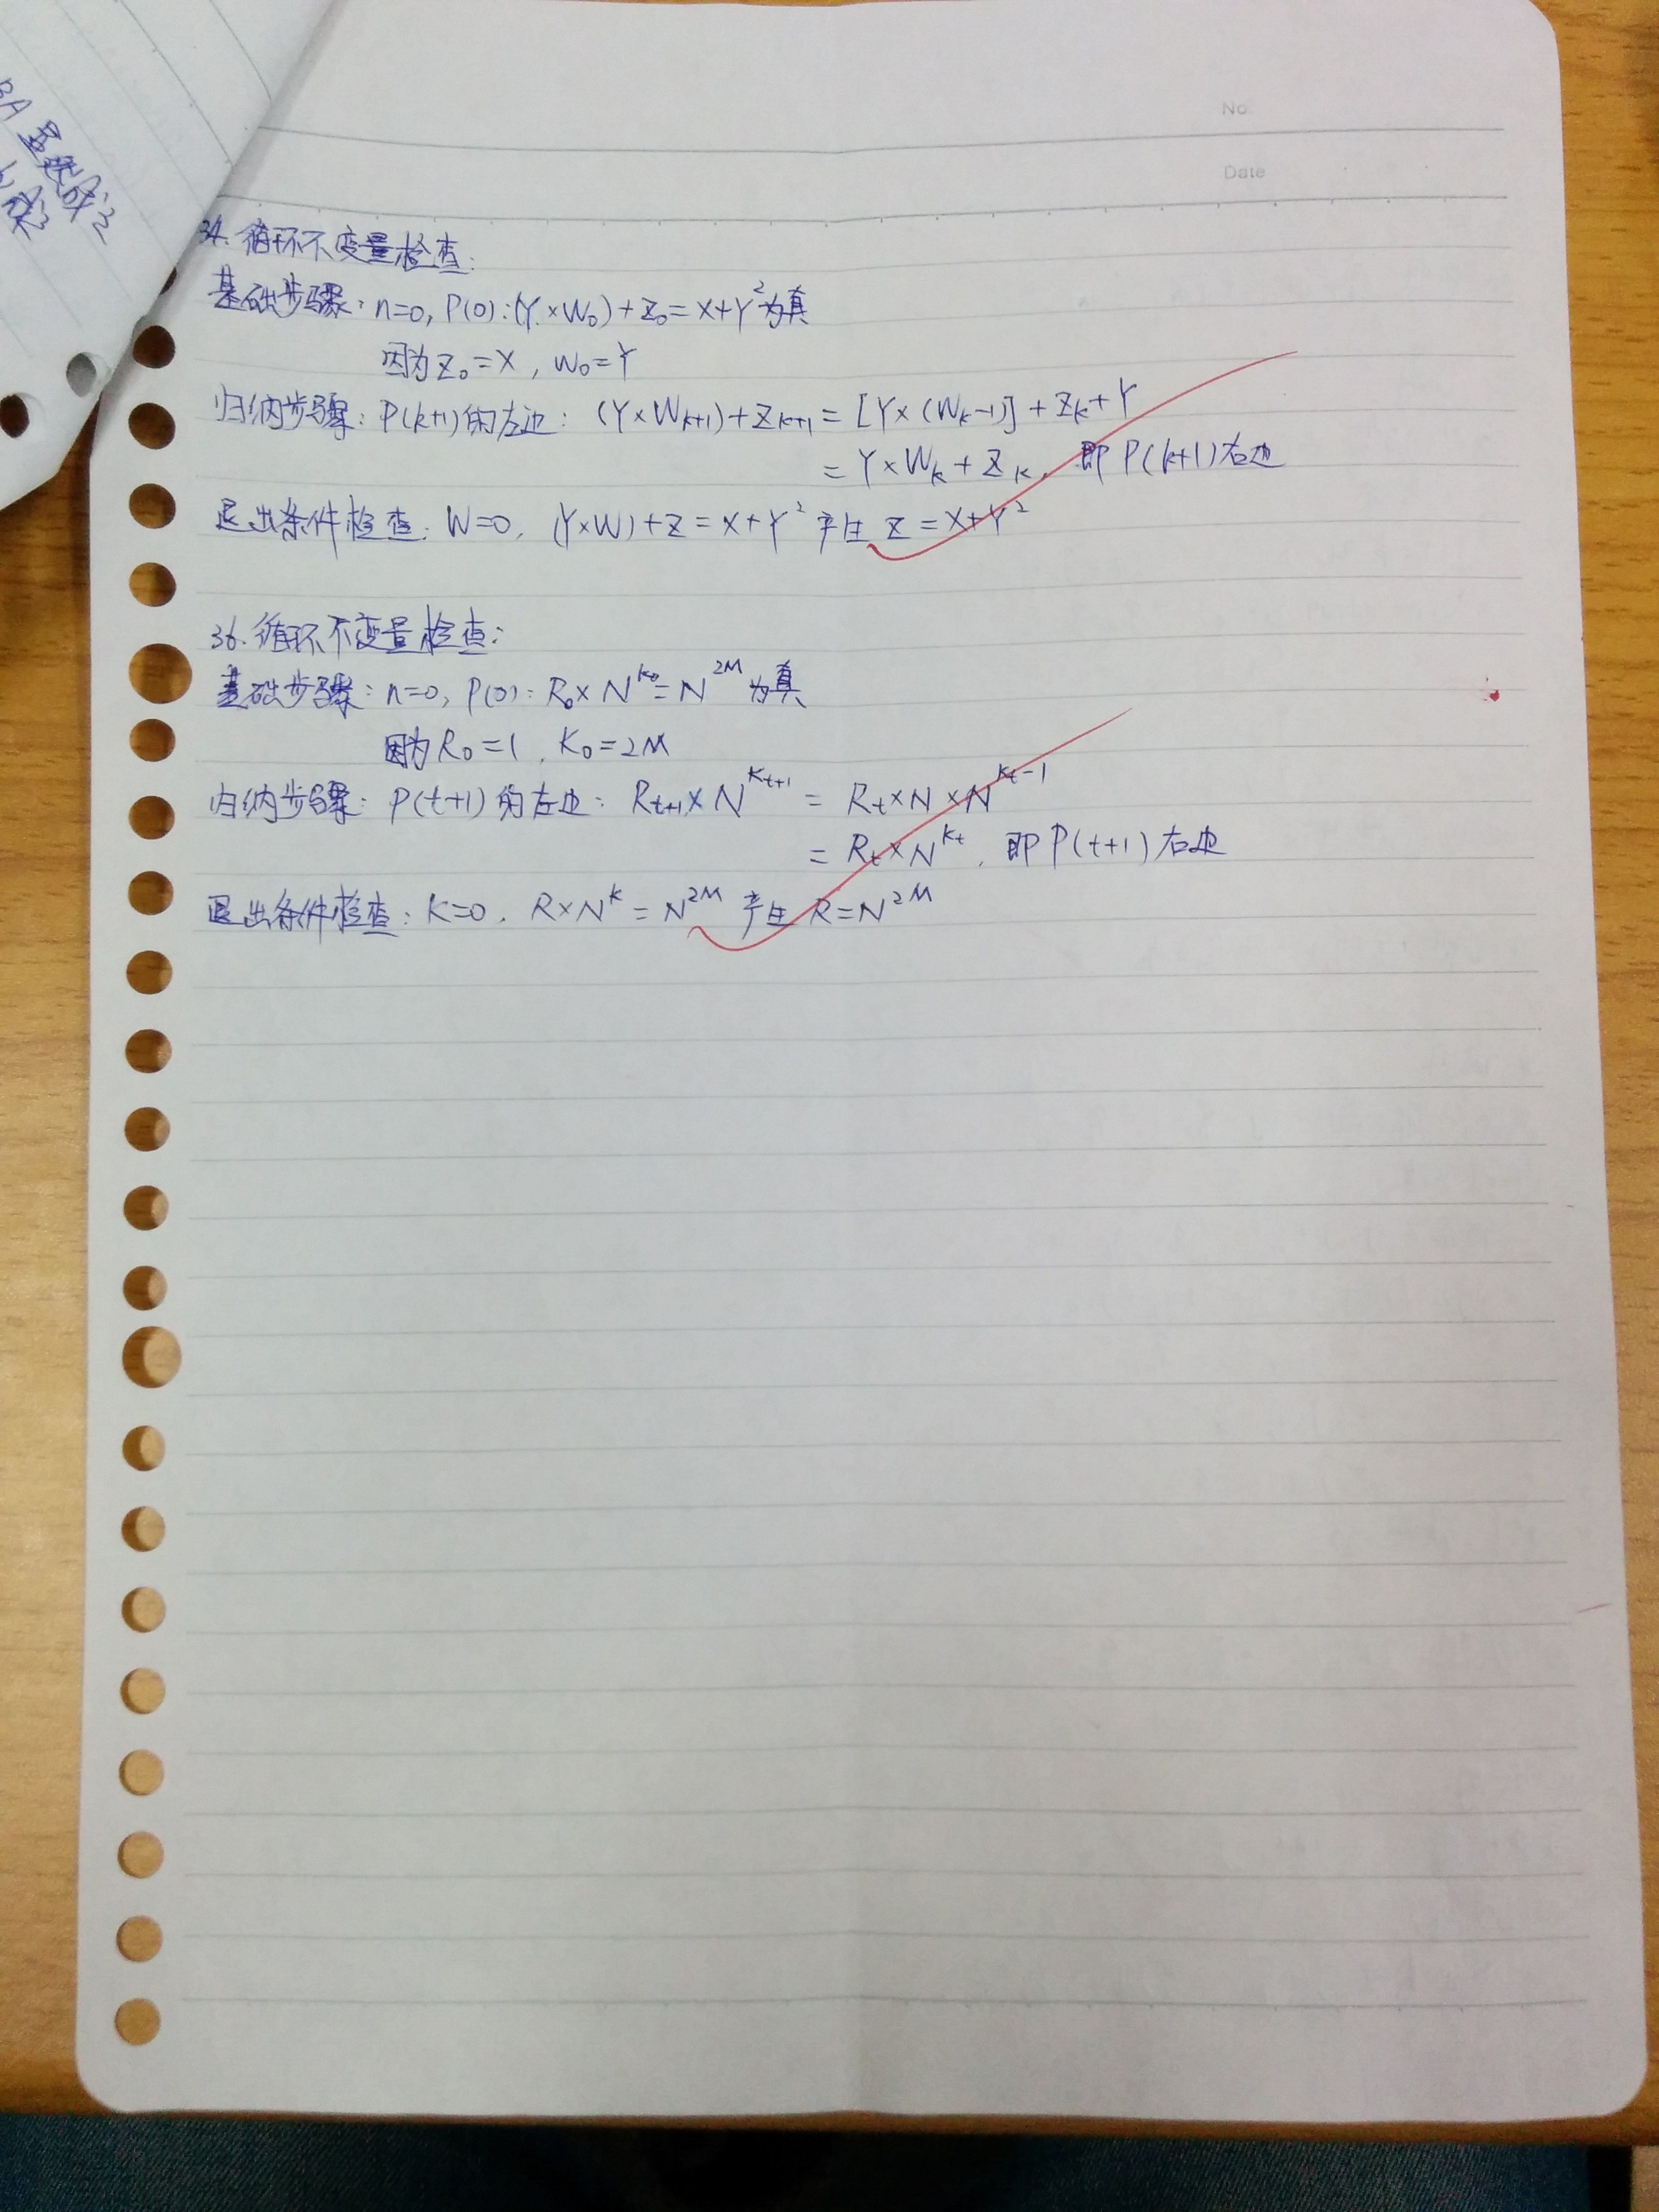 No
Date
BA 虽然成立
34. 循环不变量检查:
基础步骤: n=0, P(0): (Y×W₀)+Z₀=X+Y²为真
因为Z₀=X, W₀=Y
归纳步骤: P(k+1)的左边: (Y×Wₖ₊₁)+Zₖ₊₁=[Y×(Wₖ-1)]+Zₖ+Y
=Y×Wₖ+Zₖ, 即P(k+1)右边
退出条件检查: W=0, (Y×W)+Z=X+Y² 产生 Z=X+Y²
36. 循环不变量检查:
基础步骤: n=0, P(0): R₀×N^K₀=N^2M 为真
因为R₀=1, K₀=2M
归纳步骤: P(t+1)的左边: Rₜ₊₁×N^Kₜ₊₁ = Rₜ×N×N^Kₜ-1
= Rₜ×N^Kₜ, 即P(t+1)右边
退出条件检查: K=0, R×N^K=N^2M 产生 R=N^2M